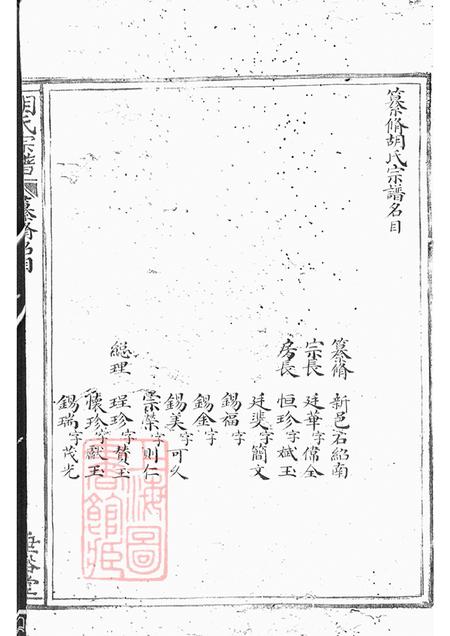 纂脩胡氏宗譜名目
纂脩 新邑石紹南
宗長 廷華字儒全
房長 恒珍字斌玉
廷斐字簡文
錫福字
錫金字
錫美字可久
宗榮字則仁
總理 珵珍字贊玉
懷珍字獻玉
錫瑞字茂光
胡氏宗譜
纂脩名目
上海圖書館藏